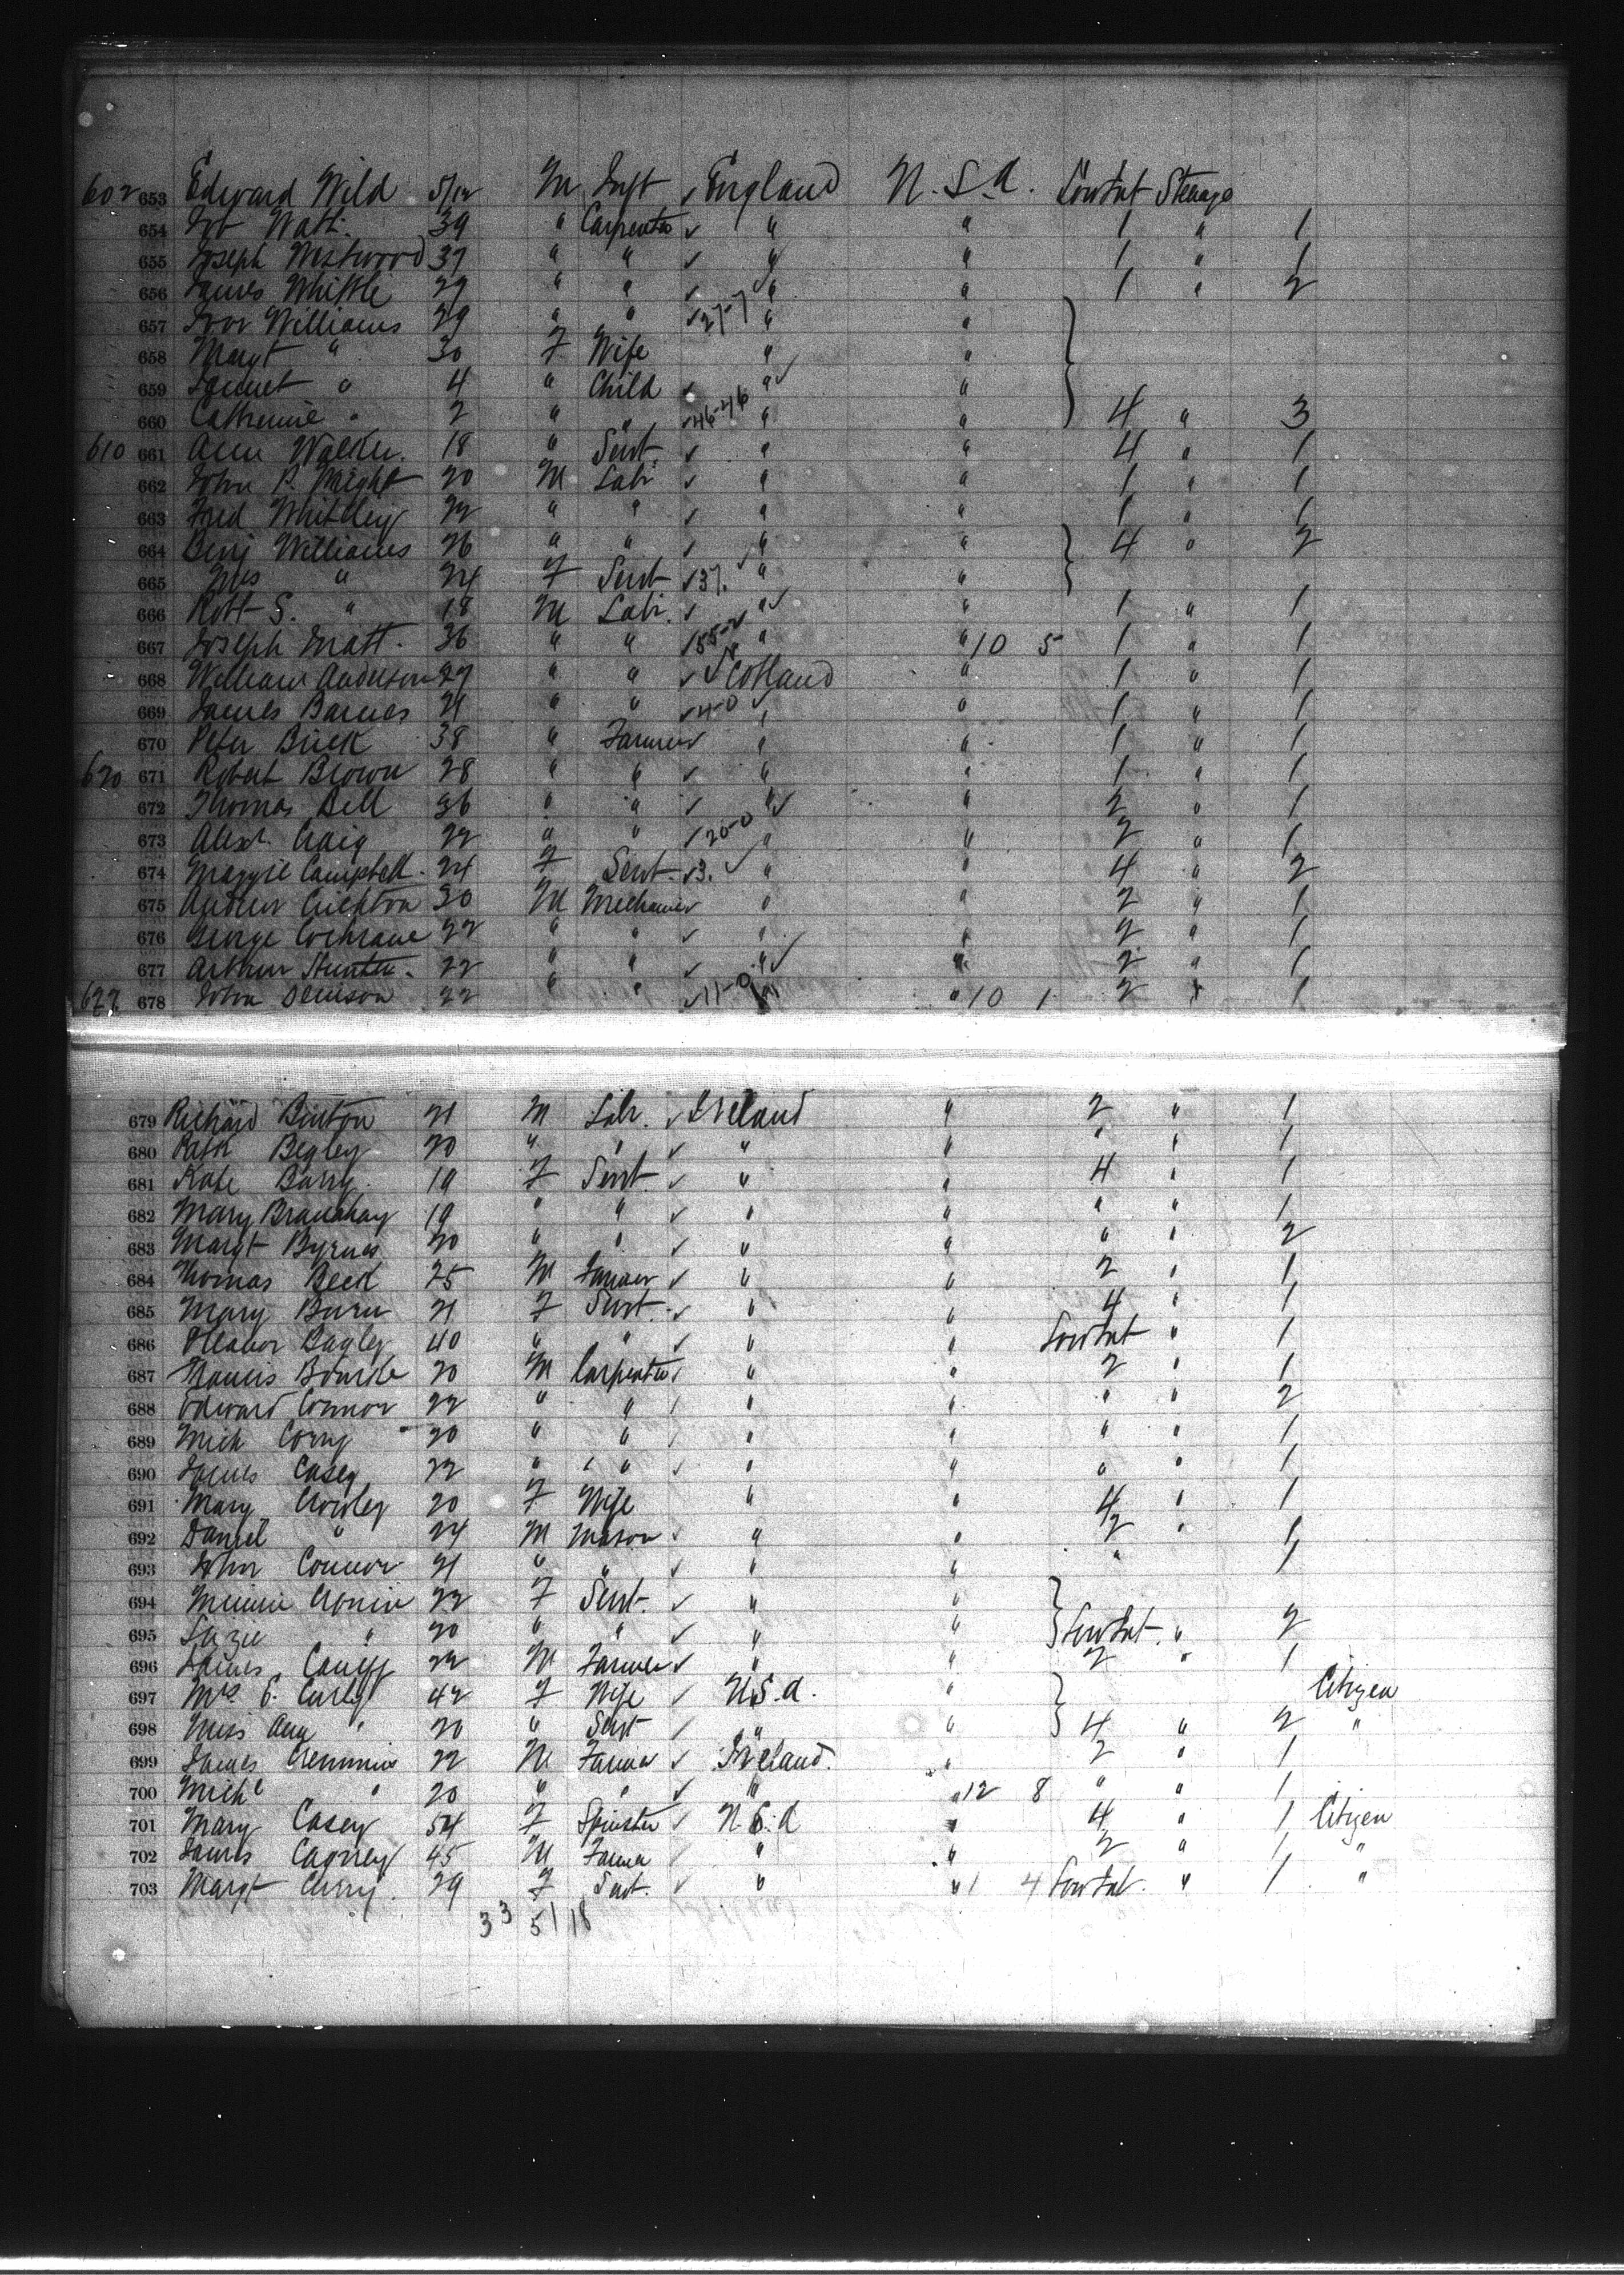 602 653 Edward Wild 5/12 M Inft ✓ England U.S.A. Low Int Steerage
654 Job Watt. 39 " Carpenter ✓ " " 1 " 1
655 Joseph Westwood 37 " " ✓ " " 1 " 1
656 James Whittle 29 " " ✓ " " 1 " 2
657 Ivor Williams 29 " " ✓ 27-7 " "
658 Margt " 30 F Wife " "
659 " 4 " Child ✓ " "
660 Catherine " 2 " " ✓ 46-46 " " 4 " 3
610 661 Ann Walker. 18 " Servt. ✓ " " 4 " 1
662 John P. Wright 20 M Labr ✓ " " 1 " 1
663 Fred Whitley 22 " " ✓ " " 1 " 1
664 Benj Williams 26 " " ✓ " " 4 " 2
665 Mrs " 24 F Servt ✓ 37. " "
666 Robt S. " 18 M Labr. ✓ " " 1 " 1
667 Joseph 36 " " " " 10 5 1 " 1
668 William Anderson 27 " " ✓ Scotland " 1 " 1
669 James Barnes 21 " " ✓ 4-0 " " 1 " 1
670 Peter 38 " Farmer ✓ " " 1 " 1
620 671 Robert Brown 28 " " ✓ " " 1 " 1
672 Thomas Bell 36 " " ✓ " " 2 " 1
673 Alexr. Craig 22 " " ✓ 20-0 " " 2 " 1
674 Maggie Campbell. 24 F Servt. ✓ 3. " " 4 " 2
675 Andrew Crichton 30 M Mechanic ✓ " " 2 " 1
676 George Cochrane 22 " " ✓ " " 2 " 1
677 Arthur Hunter. 22 " " ✓ " " 2 " 1
627 678 John Denison 22 " " ✓ 11-0 " " 10 1 2 " 1
679 Richard Binton 21 M Labr. ✓ Ireland " 2 " 1
680 Patk Begley 20 " " ✓ " " " " 1
681 Kate Barry. 19 F Servt. ✓ " " 4 " 1
682 Mary 19 " " ✓ " " " " 1
683 Margt Byrnes 20 " " ✓ " " " " 2
684 Thomas 25 M Farmer ✓ " " 2 " 1
685 Mary Burn 21 F Servt. ✓ " " 4 " 1
686 Eleanor Bagley 40 " " ✓ " " Low Int " 1
687 Francis Bourke 20 M Carpenter ✓ " " 2 " 1
688 Edward Connor 22 " " " " " " 2
689 Mich Corry 20 " " " " " " 1
690 James Casey 22 " " ✓ " " " " 1
691 Mary Crowley 20 F Wife " " 4 " 1
692 Daniel " 24 M Mason ✓ " " 2 " 1
693 John Connor 21 " " ✓ " " " 1
694 Minnie Cronin 22 F Servt. ✓ " "
695 Lizzie " 20 " " ✓ " " Low Int. " 2
696 James 22 M Farmer ✓ " " 2 " 1
697 Mrs E. 42 F Wife ✓ U.S.A. " Citizen
698 Miss Ann " 20 " Servt " " 4 " 2 "
699 James Cremmin 22 M Farmer ✓ Ireland. " 2 " 1
700 Michl " 20 " " ✓ " " 12 8 " " 1
701 Mary Casey 54 F Spinster ✓ U.S.A " 4 " 1 Citizen
702 James Cagney 45 M Farmer " " 2 " 1 "
703 Margt 29 F Servt. ✓ " " 1 4 Low Int. " 1 "
33 51 18